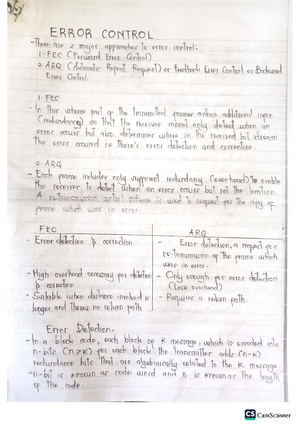 ERROR CONTROL
- There are 2 major approaches to error control:
1. FEC (Forward Error Control)
2. ARQ (Automatic Repeat Request) or Feedback Error Control or Backward
Error Control.
1. FEC
- In this scheme part of the transmitted frame contain additional infor
(redundancy) so that the receiver would not only detect when an
error occurs but also determine where in the received bit stream
the error occured so there's error detection and correction
2. ARQ
- Each frame includes only sufficient redundancy (overhead) to enable
the receiver to detect when an error occurs but not the location.
A re-transmission scheme is used to request for the copy of
frame which was in error.
FEC
ARQ
- Error detection & correction
- Error detection, a request for
re-transmission of the frame which
was in error.
- High overhead necessary for detection
& correction
- Only enough for error detection
(Low overhead)
- Suitable when distance involved is
longer and theres no return path
- Requires a return path.
Error Detection.
- In a block code, each block of K message, which is encoded into
n-bits (n>k) for each block the transmitter adds (n-k)
redundance bits that are algebraically related to the K message
- n-bit is known as code word and n is known as the length
of the code.
CS CamScanner